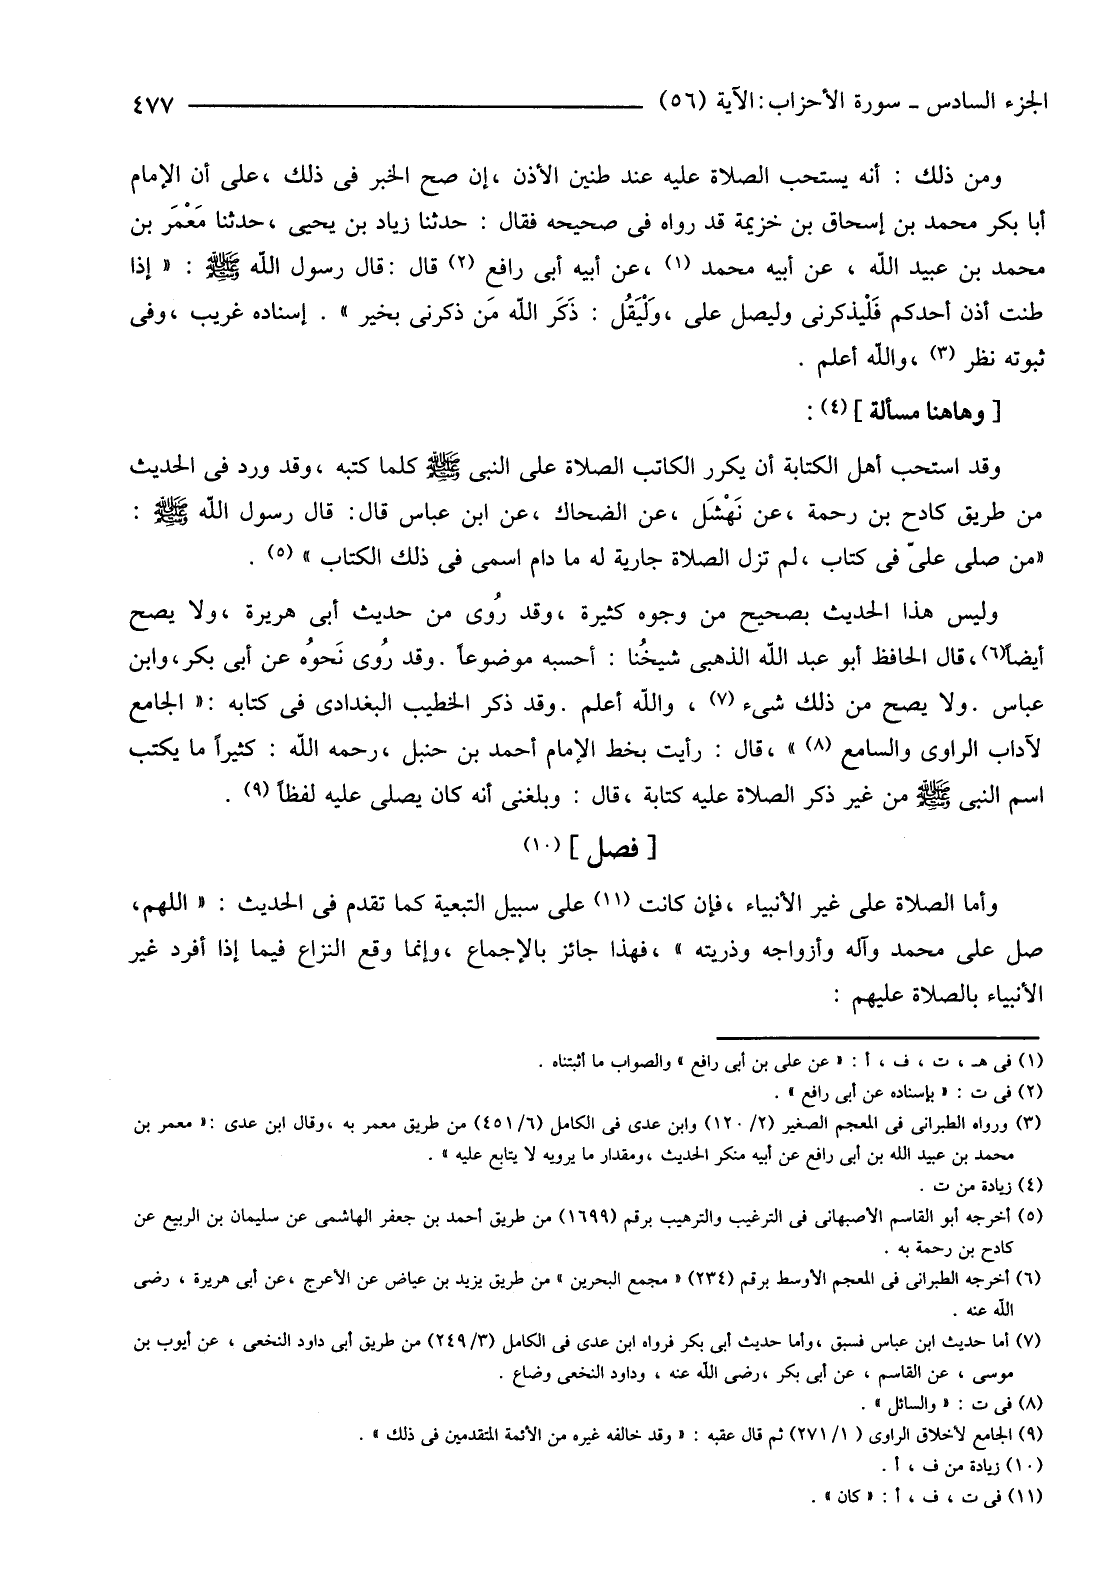 الجزء السادس ـ سورة الأحزاب : الآية (٥٦) ٤٧٧
ومن ذلك : أنه يستحب الصلاة عليه عند طنين الأذن ،إن صح الخبر فى ذلك ،على أن الإمام
أبا بكر محمد بن إسحاق بن خزيمة قد رواه فى صحيحه فقال : حدثنا زياد بن يحيى ،حدثنا مَعْمَر بن
محمد بن عبيد الله ، عن أبيه محمد (١) ،عن أبيه أبى رافع (٢) قال :قال رسول الله ﷺ : « إذا
طنت أذن أحدكم فَلْيذكرنى وليصل على ،وَلْيَقُل : ذَكَر الله مَن ذكرنى بخير » . إسناده غريب ،وفى
ثبوته نظر (٣) ،والله أعلم .
[ وهاهنا مسألة ] (٤) :
وقد استحب أهل الكتابة أن يكرر الكاتب الصلاة على النبى ﷺ كلما كتبه ،وقد ورد فى الحديث
من طريق كادح بن رحمة ،عن نَهْشَل ،عن الضحاك ،عن ابن عباس قال: قال رسول الله ﷺ :
«من صلى علىّ فى كتاب ،لم تزل الصلاة جارية له ما دام اسمى فى ذلك الكتاب » (٥) .
وليس هذا الحديث بصحيح من وجوه كثيرة ،وقد رُوى من حديث أبى هريرة ،ولا يصح
أيضاً(٦)،قال الحافظ أبو عبد الله الذهبى شيخُنا : أحسبه موضوعاً .وقد رُوى نَحوُه عن أبى بكر،وابن
عباس .ولا يصح من ذلك شىء (٧) ، والله أعلم .وقد ذكر الخطيب البغدادى فى كتابه :« الجامع
لآداب الراوى والسامع (٨) » ،قال : رأيت بخط الإمام أحمد بن حنبل ،رحمه الله : كثيراً ما يكتب
اسم النبى ﷺ من غير ذكر الصلاة عليه كتابة ،قال : وبلغنى أنه كان يصلى عليه لفظاً (٩) .
[ فصل ] (١٠)
وأما الصلاة على غير الأنبياء ،فإن كانت (١١) على سبيل التبعية كما تقدم فى الحديث : « اللهم،
صل على محمد وآله وأزواجه وذريته » ،فهذا جائز بالإجماع ،وإنما وقع النزاع فيما إذا أفرد غير
الأنبياء بالصلاة عليهم :
(١) فى هـ ، ت ، ف ، أ : « عن على بن أبى رافع » والصواب ما أثبتناه .
(٢) فى ت : « بإسناده عن أبى رافع » .
(٣) ورواه الطبرانى فى المعجم الصغير (٢/ ١٢٠) وابن عدى فى الكامل (٦/ ٤٥١) من طريق معمر به ،وقال ابن عدى :« معمر بن
محمد بن عبيد الله بن أبى رافع عن أبيه منكر الحديث ،ومقدار ما يرويه لا يتابع عليه » .
(٤) زيادة من ت .
(٥) أخرجه أبو القاسم الأصبهانى فى الترغيب والترهيب برقم (١٦٩٩) من طريق أحمد بن جعفر الهاشمى عن سليمان بن الربيع عن
كادح بن رحمة به .
(٦) أخرجه الطبرانى فى المعجم الأوسط برقم (٢٣٤) « مجمع البحرين » من طريق يزيد بن عياض عن الأعرج ،عن أبى هريرة ، رضى
الله عنه .
(٧) أما حديث ابن عباس فسبق ،وأما حديث أبى بكر فرواه ابن عدى فى الكامل (٣/ ٢٤٩) من طريق أبى داود النخعى ، عن أيوب بن
موسى ، عن القاسم ، عن أبى بكر ،رضى الله عنه ، وداود النخعى وضاع .
(٨) فى ت : « والسائل » .
(٩) الجامع لأخلاق الراوى ( ١/ ٢٧١) ثم قال عقبه : « وقد خالفه غيره من الأئمة المتقدمين فى ذلك » .
(١٠) زيادة من ف ، أ .
(١١) فى ت ، ف ، أ : « كان » .